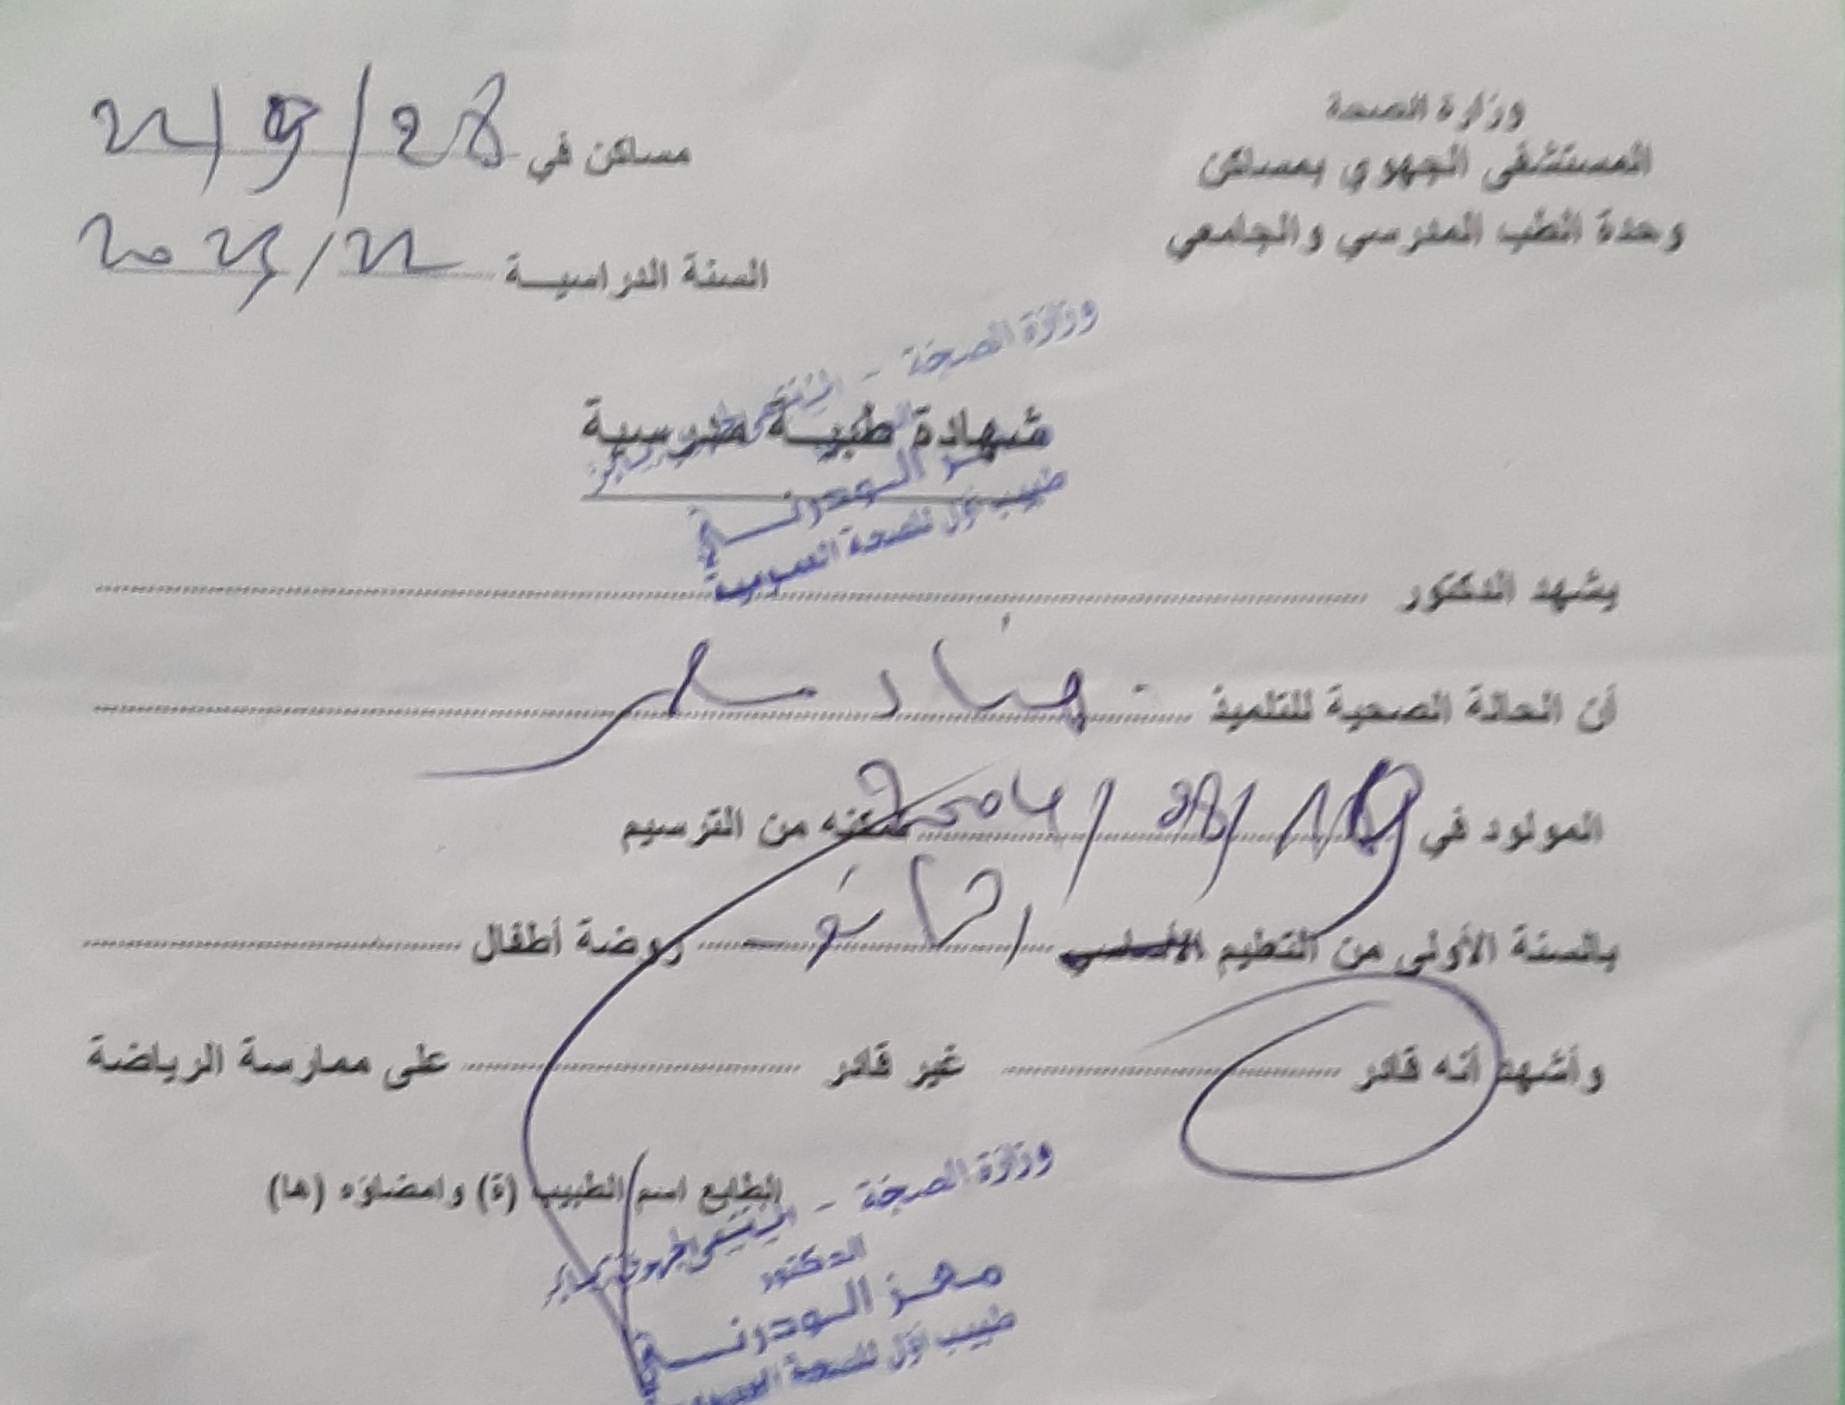 وزارة الصحة
المستشفى الجهوي بمساكن
وحدة الطب المدرسي والجامعي
مساكن في 28/9/22
السنة الدراسية 22/2023
وزارة الصحة -
شهادة طبية مدرسية
معز الودرني
طبيب أول للصحة العمومية
يشهد الدكتور
أن الحالة الصحية للتلميذ
المولود في 2004/08/19 تمكنه من الترسيم
بالسنة الأولى من التعليم الأساسي الثانوي روضة أطفال
وأشهد أنه قادر غير قادر على ممارسة الرياضة
الطابع اسم الطبيب (ة) وامضاؤه (ها)
وزارة الصحة - المستشفى الجهوي بمساكن
الدكتور
معز الودرني
طبيب أول للصحة العمومية